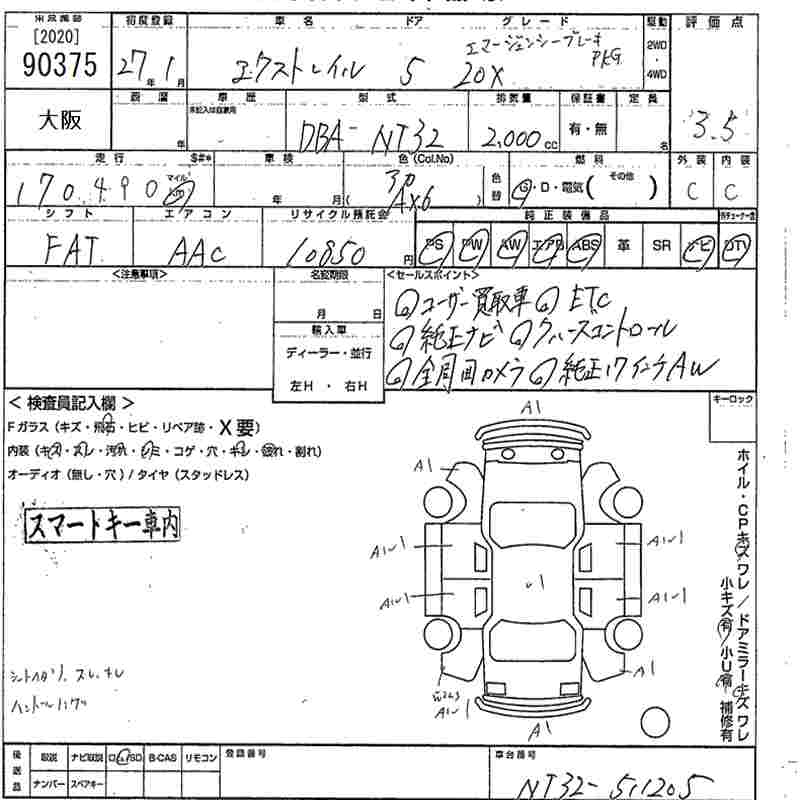 [2020]
90375
大阪
初度登録
27年1月
車名
エクストレイル
ドア
5
グレード
エマージェンシーブレーキ
PKG
20X
駆動
2WD
・
4WD
評価点
3.5
車歴
型式
DBA-NT32
排気量
2,000cc
保証書
有・無
定員
名
走行
170,490
マイル
km
車検
年 月
色(Col.No)
色替
燃料
G・D・電気( その他 )
外装
C
内装
C
シフト
FAT
エアコン
AAC
リサイクル預託金
10850円
純正装備品
PS PW AW エアB ABS 革 SR ナビ DTV
<注意事項>
名変期限
月 日
輸入車
ディーラー・並行
左H・右H
<セールスポイント>
ユーザー買取車 ETC
純正ナビ クルーズコントロール
全周囲カメラ 純正17インチAW
キーロック
<検査員記入欄>
Fガラス(キズ・飛石・ヒビ・リペア跡・X要)
内装(キズ・スレ・汚れ・シミ・コゲ・穴・キレ・破れ・割れ)
オーディオ(無し・穴)/タイヤ(スタッドレス)
スマートキー車内
A1
A1
A1
A1
ホイル・CPキズワレ/ドアミラーキズワレ
小キズ有/小U有 補修有
後送品
取説 ナビ取説 B-CAS リモコン
ナンバー スペアキー
登録番号
車台番号
NT32-511205